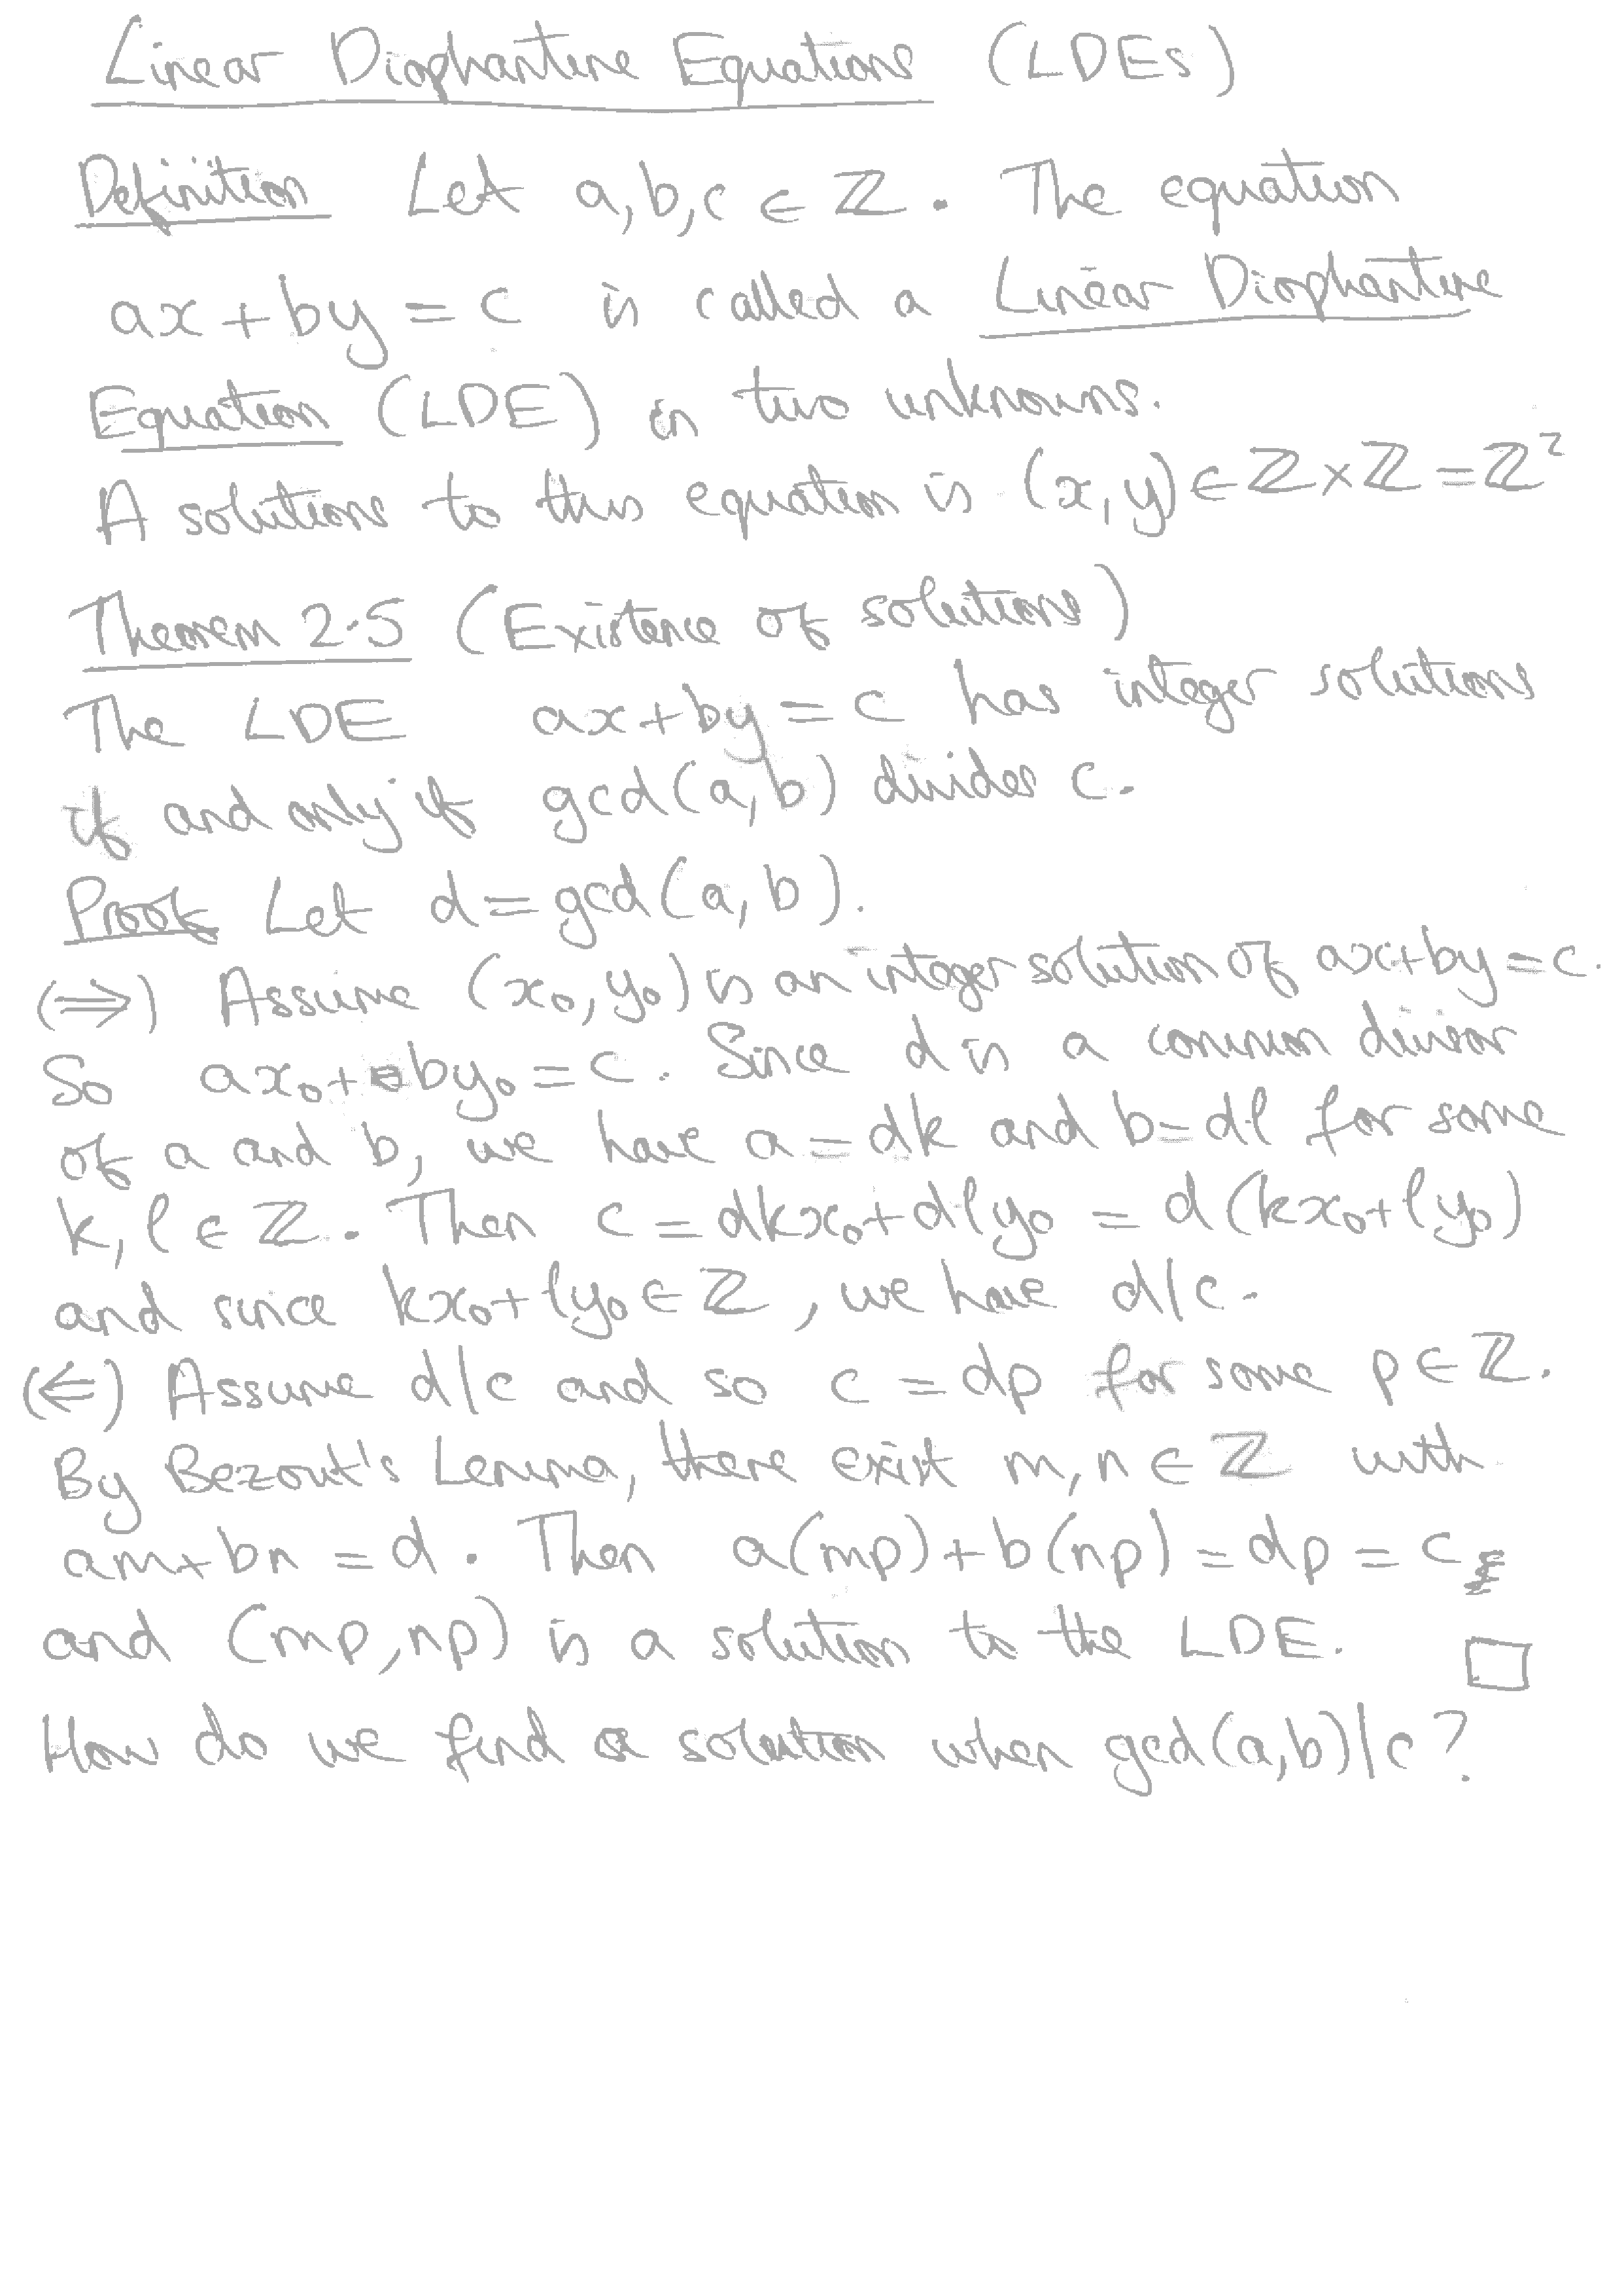 Linear Diophantine Equations (LDEs)
Definition Let a,b,c ∈ ℤ. The equation
ax+by=c is called a Linear Diophantine
Equation (LDE) in two unknowns.
A solutions to this equation is (x,y)∈ℤ×ℤ=ℤ²
Theorem 2.5 (Existence of solutions)
The LDE ax+by=c has integer solutions
if and only if gcd(a,b) divides c.
Proof Let d=gcd(a,b).
(⇒) Assume (x₀,y₀) is an integer solution of ax+by=c.
So ax₀+by₀=c. Since d is a common divisor
of a and b, we have a=dk and b=dl for some
k,l ∈ ℤ. Then c=dkx₀+dly₀ = d(kx₀+ly₀)
and since kx₀+ly₀∈ℤ, we have d|c.
(⇐) Assume d|c and so c=dp for some p∈ℤ.
By Bezout's Lemma, there exist m,n∈ℤ with
am+bn=d. Then a(mp)+b(np)=dp=c
and (mp,np) is a solution to the LDE. □
How do we find a solution when gcd(a,b)|c?